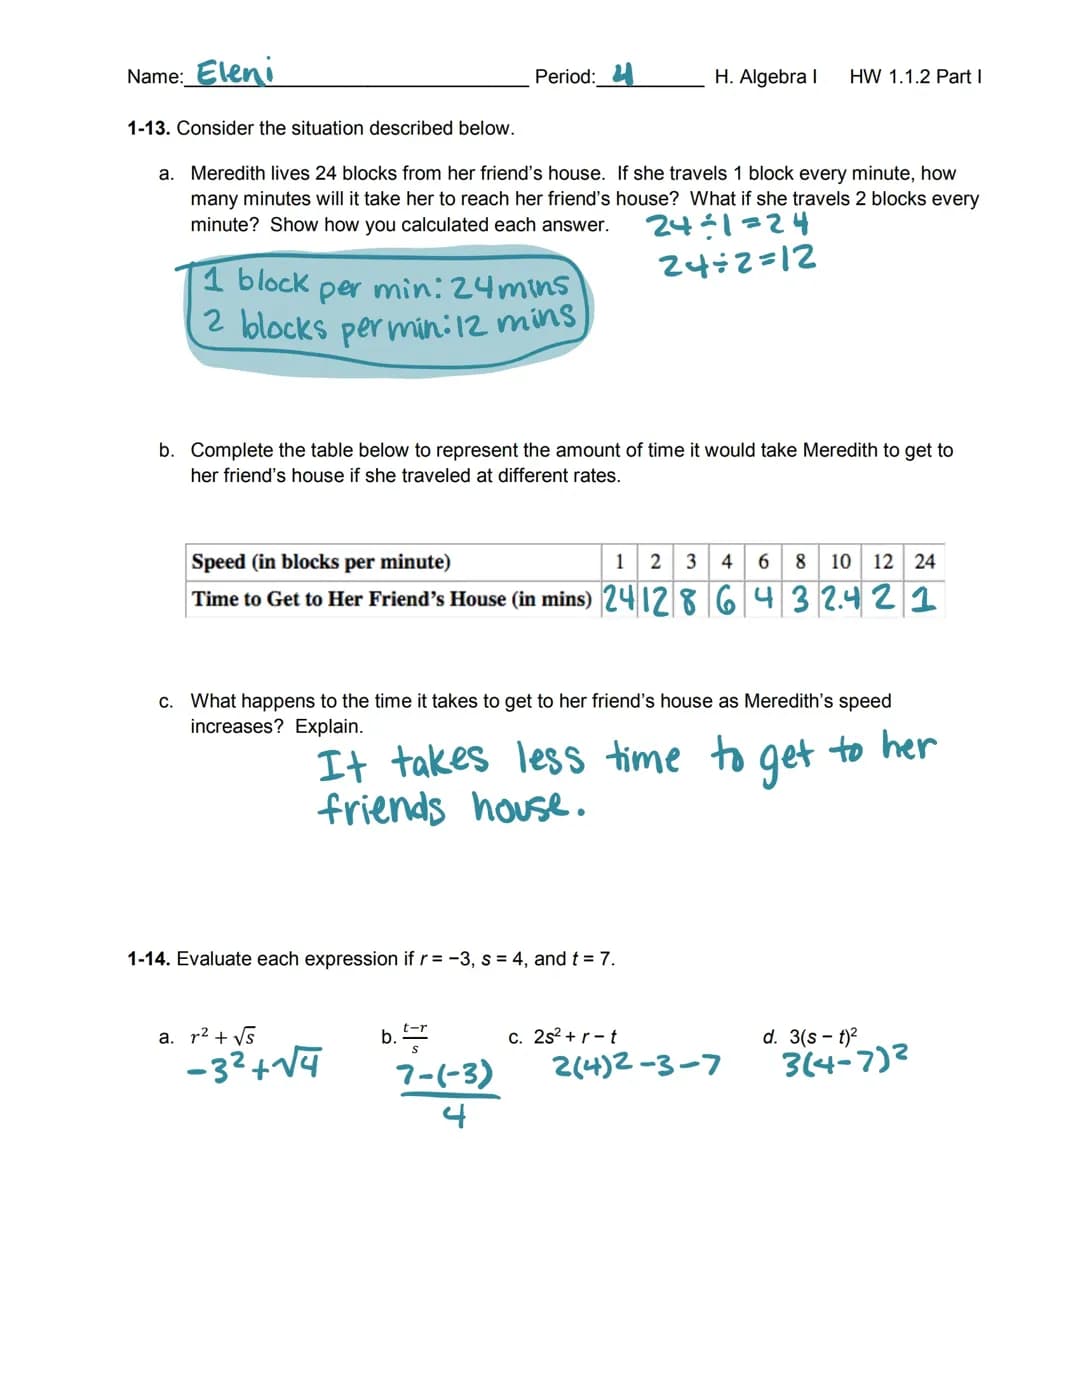 Name: Eleni Period: 4 H. Algebra I HW 1.1.2 Part I
1-13. Consider the situation described below.
a. Meredith lives 24 blocks from her friend's house. If she travels 1 block every minute, how
many minutes will it take her to reach her friend's house? What if she travels 2 blocks every
minute? Show how you calculated each answer.
24÷1=24
24÷2=12
1 block per min: 24 mins
2 blocks per min: 12 mins
b. Complete the table below to represent the amount of time it would take Meredith to get to
her friend's house if she traveled at different rates.
Speed (in blocks per minute) 1 2 3 4 6 8 10 12 24
Time to Get to Her Friend's House (in mins) 24 12 8 6 4 3 2.4 2 1
c. What happens to the time it takes to get to her friend's house as Meredith's speed
increases? Explain.
It takes less time to get to her
friends house.
1-14. Evaluate each expression if r = −3, s = 4, and t = 7.
a. r² + √s b. (t−r)/s c. 2s² + r − t d. 3(s − t)²
-3²+√4 (7-(-3))/4 2(4)2-3-7 3(4-7)²